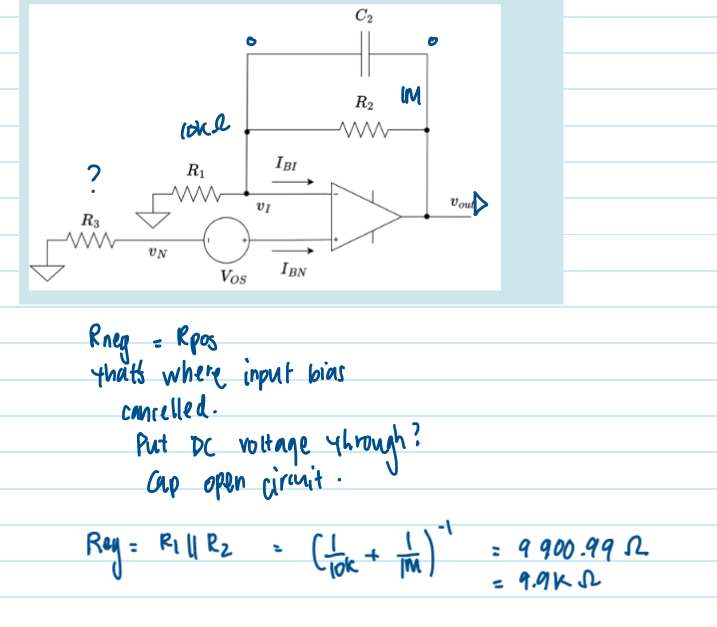 C₂
o o
R₂ 1M
10kΩ
I_BI
? R₁
v_I v_out
R₃
v_N
V_OS I_BN
Rneg = Rpos
that's where input bias
cancelled.
Put DC voltage through?
Cap open circuit.
Req = R₁ || R₂ = (1/10k + 1/1M)⁻¹ = 9 900.99 Ω
= 9.9K Ω